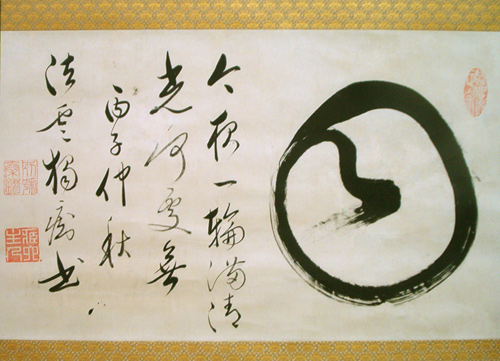 今夜一輪滿清
光何處無
丙子仲秋
法雲獨 書